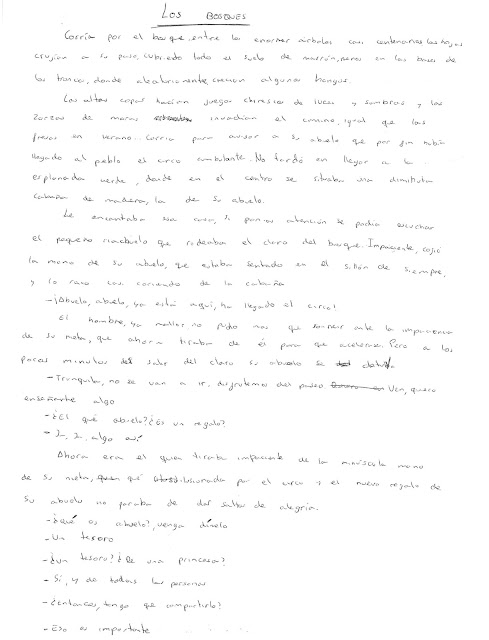 LOS BOSQUES
Corría por el bosque, entre los enormes árboles casi centenarios. Las hojas
crujían a su paso, cubriendo todo el suelo de marrón, menos en las bases de
los troncos, donde aleatoriamente crecían algunos hongos.
Las altas copas hacían juegos de luces y sombras y las
zarzas de moras invadían el camino, igual que las
fresas en verano. Corría para avisar a su abuelo que por fin había
llegado al pueblo el circo ambulante. No tardó en llegar a la
explanada verde, donde en el centro se situaba una diminuta
cabaña de madera, la de su abuelo.
Le encantaba esa casa, si ponías atención se podía escuchar
el pequeño riachuelo que rodeaba el claro del bosque. Impaciente, cogió
la mano de su abuelo, que estaba sentado en el sillón de siempre,
y lo sacó casi corriendo de la cabaña
- ¡Abuelo, abuelo, ya está aquí, ha llegado el circo!
El hombre, ya mallor no pudo mas que sonreir ante la impaciencia
de su nieta, que ahora tiraba de él para que acelerara. Pero a los
pocos minutos de salir del claro su abuelo se
- Tranquila, no se van a ir, disfrutemos del paseo. Ven, quiero
enseñarte algo
- ¿El qué abuelo? ¿Es un regalo?
- Sí, sí, algo así
Ahora era el quien tiraba impaciente de la minúscula mano
de su nieta, quien ilusionada por el circo y el nuevo regalo de
su abuelo no paraba de dar saltos de alegría.
- ¿Qué es abuelo?, venga dímelo
- Un tesoro
- ¿Un tesoro? ¿De una princesa?
- Sí, y de todas las personas
- ¿Entonces, tengo que compartirlo?
- Eso es importante